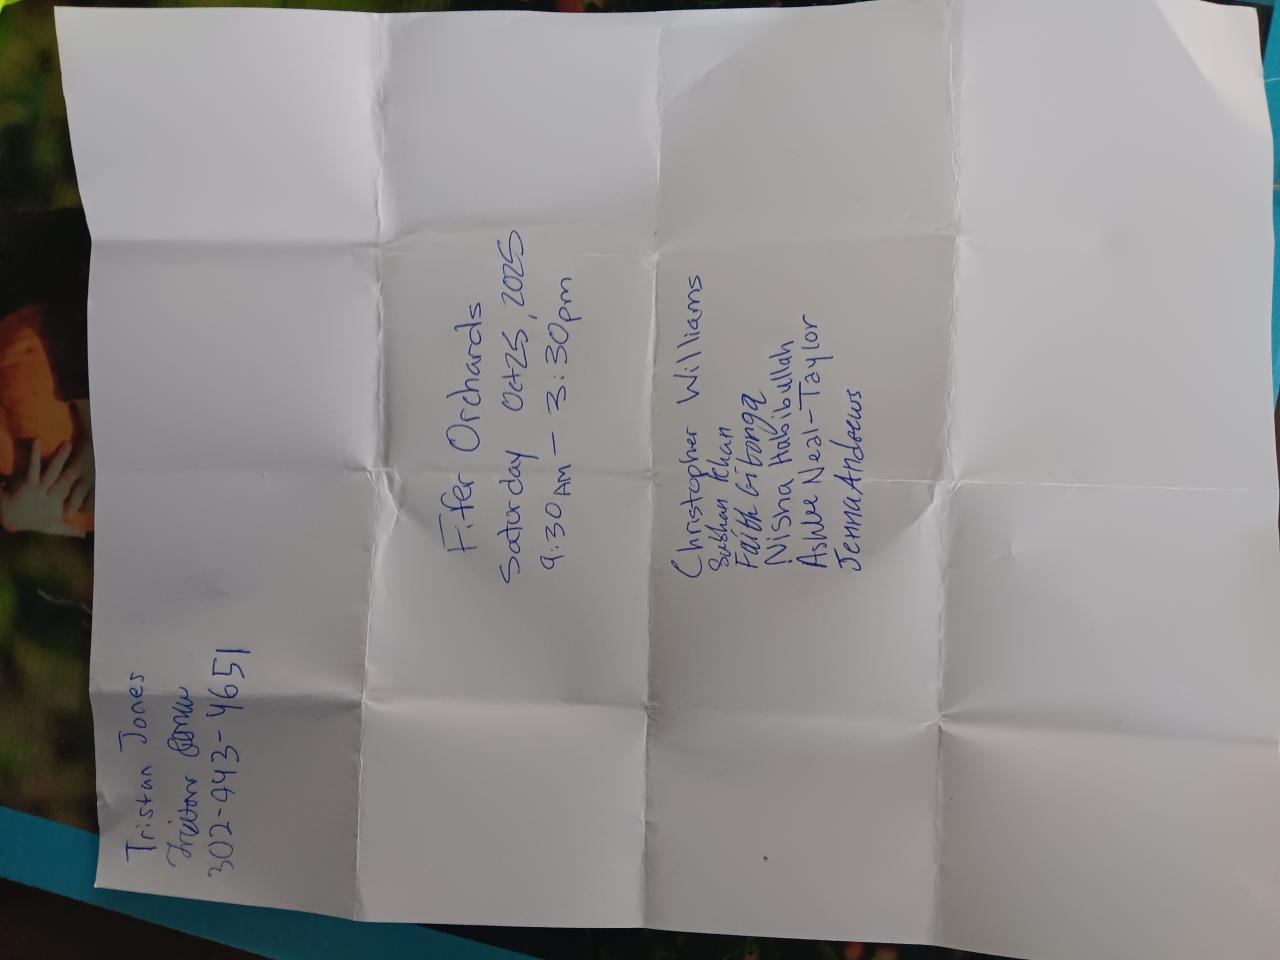 Tristan Jones
Tristan Jones
302-443-4651
Fifer Orchards
Saturday Oct 25, 2025
9:30 AM - 3:30pm
Christopher Williams
Subhan Khan
Faith Gitonga
Nisha Habibullah
Ashlee Neal-Taylor
Jenna Andrews